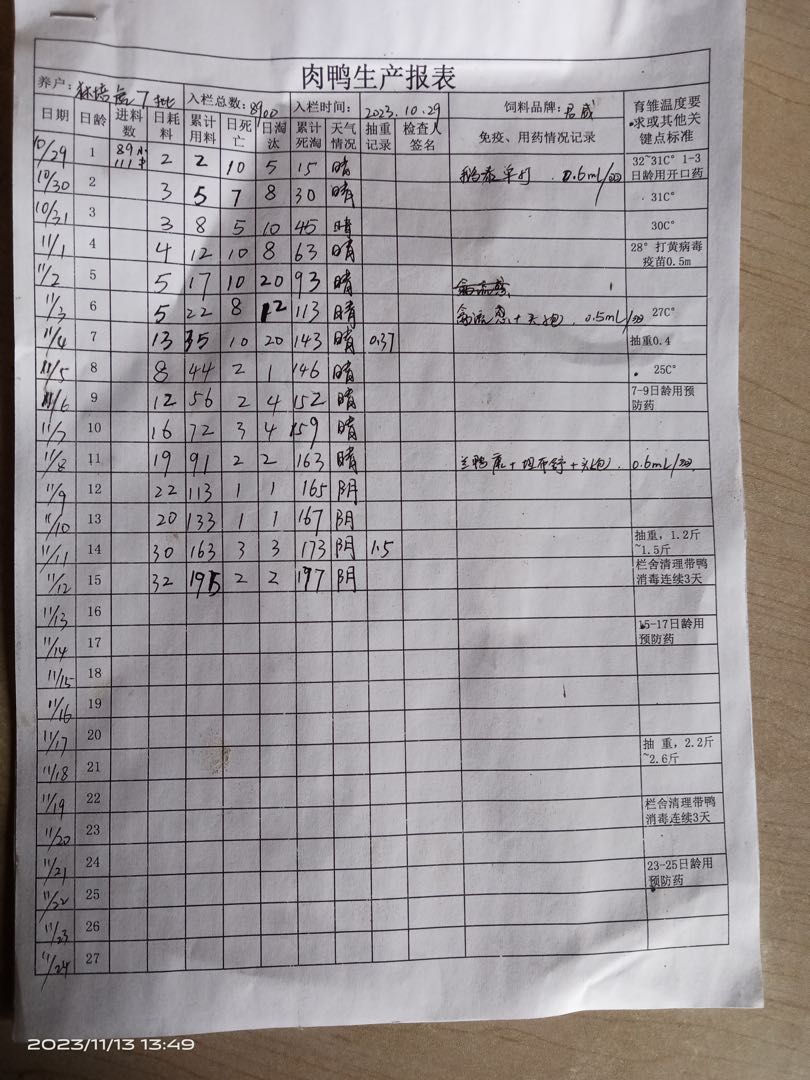 肉鸭生产报表
养户: 7批 入栏总数:8900 入栏时间: 2023.10.29 饲料品牌: 育雏温度要求或其他关键点标准
日期 日龄 进料数 日耗料 累计用料 日死亡 日淘汰 累计死淘 天气情况 抽重记录 检查人签名 免疫、用药情况记录
10/29 1 2 2 10 5 15 晴 0.6ml/羽 32~31C° 1-3日龄用开口药
10/30 2 3 5 7 8 30 晴 31C°
10/31 3 3 8 5 10 45 晴 30C°
11/1 4 4 12 10 8 63 晴 28° 打黄病毒疫苗0.5m
11/2 5 5 17 10 20 93 晴
11/3 6 5 22 8 12 113 晴 0.5ml/羽 27C°
11/4 7 13 35 10 20 143 晴 0.37 抽重0.4
11/5 8 8 44 2 1 146 晴 25C°
11/6 9 12 56 2 4 152 晴 7-9日龄用预防药
11/7 10 16 72 3 4 159 晴
11/8 11 19 91 2 2 163 晴 0.6ml/羽
11/9 12 22 113 1 1 165 阴
11/10 13 20 133 1 1 167 阴
11/11 14 30 163 3 3 173 阴 1.5 抽重，1.2斤~1.5斤
11/12 15 32 195 2 2 197 阴 栏舍清理带鸭消毒连续3天
11/13 16
11/14 17 15-17日龄用预防药
11/15 18
11/16 19
11/17 20
11/18 21 抽 重，2.2斤~2.6斤
11/19 22
11/20 23 栏舍清理带鸭消毒连续3天
11/21 24
11/22 25 23-25日龄用预防药
11/23 26
11/24 27
2023/11/13 13:49